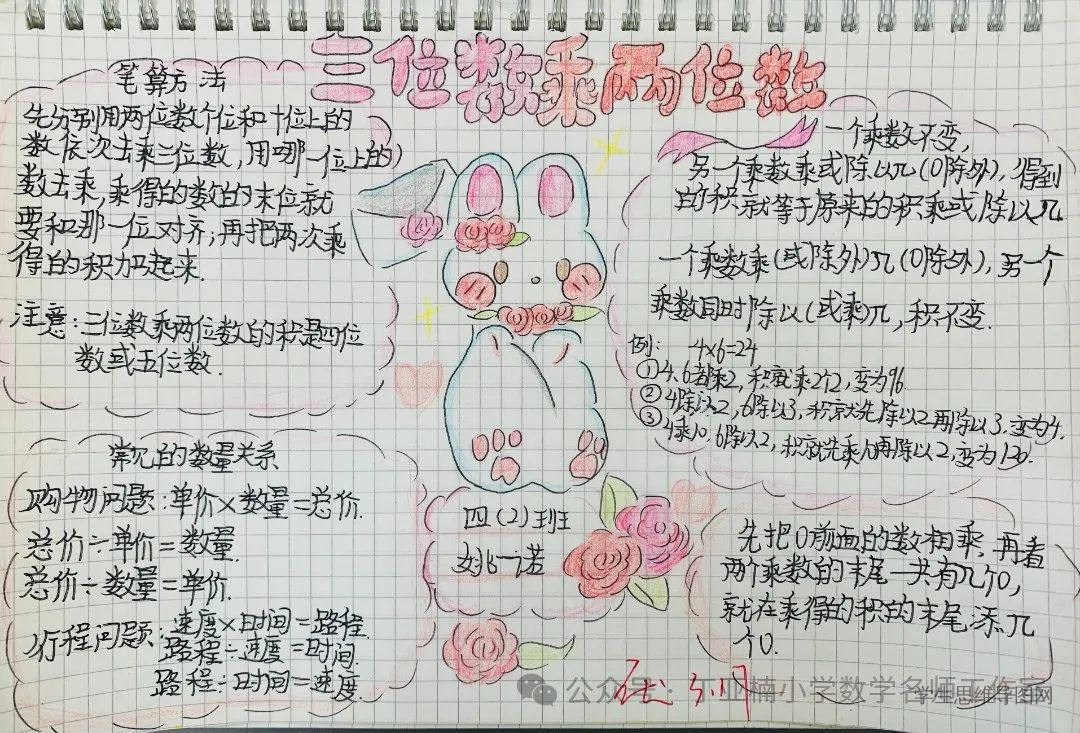 三位数乘两位数
笔算方法
先分别用两位数个位和十位上的
数依次去乘三位数,用哪一位上的
数去乘,乘得的数的末位就
要和那一位对齐;再把两次乘
得的积加起来.
注意:三位数乘两位数的积是四位
数或五位数.
一个乘数不变,
另一个乘数乘或除以几(0除外),得到
的积就等于原来的积乘或除以几
一个乘数乘(或除外)几(0除外),另一个
乘数同时除以(或乘)几,积不变.
例: 4×6=24
①4、6都乘2,积就乘2个2,变为96
②4除以2,6除以3,积就先除以2再除以3.变为4.
③4乘10.6除以2,积就先乘10再除以2,变为120.
常见的数量关系
购物问题:单价×数量=总价.
总价÷单价=数量.
总价÷数量=单价.
行程问题:速度×时间=路程.
路程÷速度=时间.
路程÷时间=速度.
四(2)班
姚一诺
先把0前面的数相乘,再看
两个乘数的末尾一共有几个0,
就在乘得的积的末尾添几
个0.
公众号·丁亚楠小学数学名师工作室
学生思维导图网